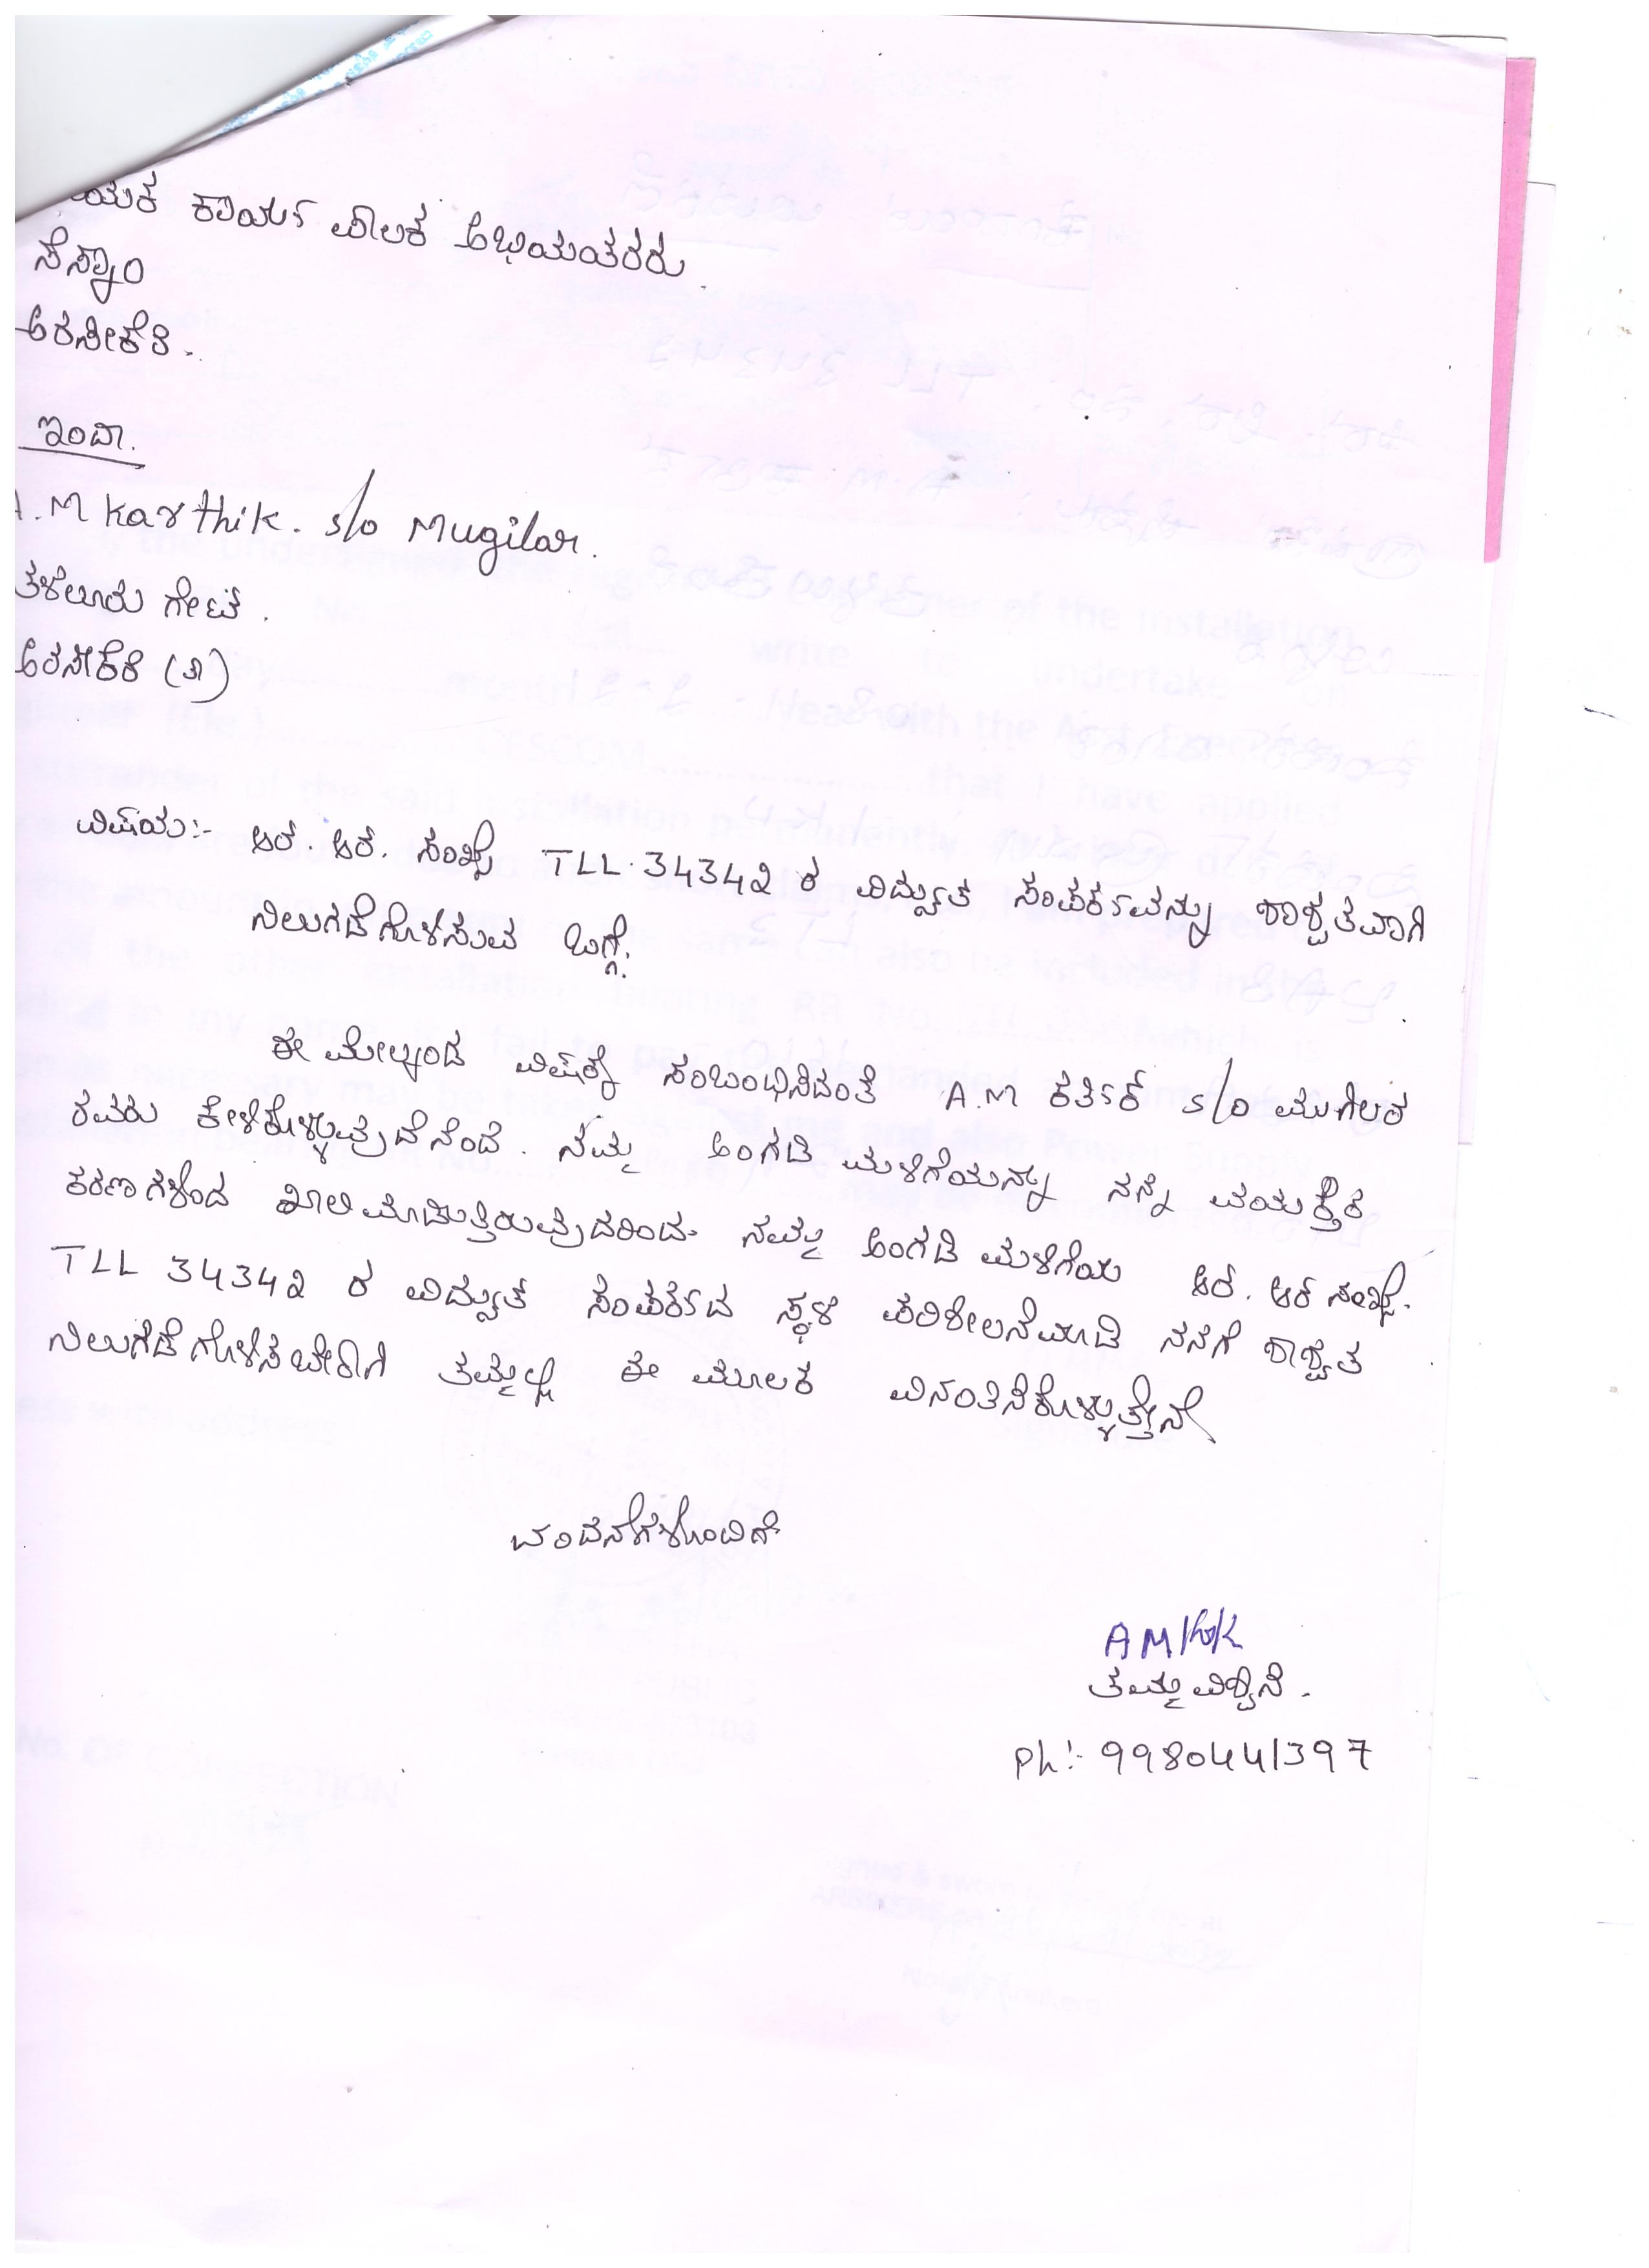 ಯಕ ಕಾರ್ಯ ಪಾಲಕ ಅಭಿಯಂತರರು
ಸೆಸ್ಕಾಂ
ಅರಸೀಕೆರೆ.
ಇಂದಾ.
A.M Karthik. s/o Mugilar.
ತಳಲೂರು ಗೇಟ್.
ಅರಸೀಕೆರೆ (ತಾ)
ವಿಷಯ:- ಆರ್. ಆರ್. ಸಂಖ್ಯೆ TLL 34342 ರ ವಿದ್ಯುತ ಸಂಪರ್ಕವನ್ನು ಶಾಶ್ವತವಾಗಿ
ನಿಲುಗಡೆಗೊಳಿಸುವ ಬಗ್ಗೆ.
ಈ ಮೇಲ್ಕಂಡ ವಿಷಯಕ್ಕೆ ಸಂಬಂಧಿಸಿದಂತೆ A.M ಕರ್ತಿಕ್ s/o ಮುಗಿಲರ
ರವರು ಕೇಳಿಕೊಳ್ಳುವುದೆನೆಂದೆ. ನಮ್ಮ ಅಂಗಡಿ ಮಳಿಗೆಯನ್ನು ನನ್ನ ವಯಕ್ತಿಕ
ಕರಣಗಳಿಂದ ಖಾಲಿ ಮಾಡುತ್ತಿರುವುದರಿಂದ ನಮ್ಮ ಅಂಗಡಿ ಮಳಿಗೆಯ ಆರ್. ಆರ್ ಸಂಖ್ಯೆ.
TLL 34342 ರ ವಿದ್ಯುತ ಸಂಪರ್ಕದ ಸ್ಥಳ ಪರಿಶೀಲನೆಮಾಡಿ ನನಗೆ ಶಾಶ್ವತ
ನಿಲುಗೆಡೆಗೊಳಿಸಬೇಕಾಗಿ ತಮ್ಮಲ್ಲಿ ಈ ಮೂಲಕ ವಿನಂತಿಸಿಕೊಳ್ಳುತ್ತೇನೆ
ವಂದನೆಗಳೊಂದಿಗೆ
ತಮ್ಮ ವಿಶ್ವಾಸಿ.
Ph:- 9980441397